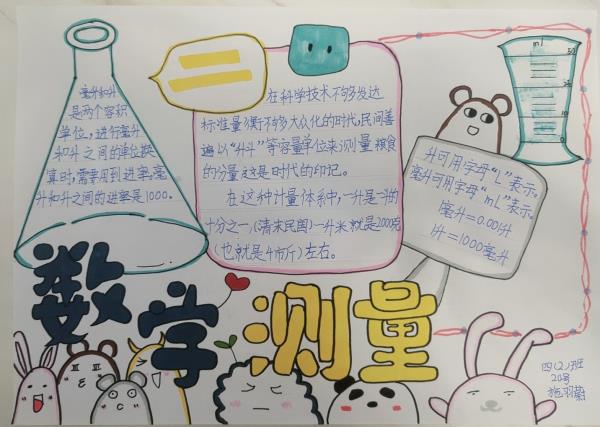 毫升和升
是两个容积
单位，进行毫升
和升之间的单位换
算时，需要用到进率，毫
升和升之间的进率是1000。
在科学技术不够发达
标准量衡不够大众化的时代，民间普
遍以“升斗”等容量单位来测量粮食
的分量这是时代的印记。
在这种计量体系中，一升是一斗的
十分之一，（清末民国）一升米就是2000克
（也就是4市斤）左右。
ml
50
25
10
0
升可用字母“L”表示。
毫升可用字母“mL”表示。
1毫升=0.001升
1升=1000毫升
数学测量
四（2）班
20号
施羽蔚